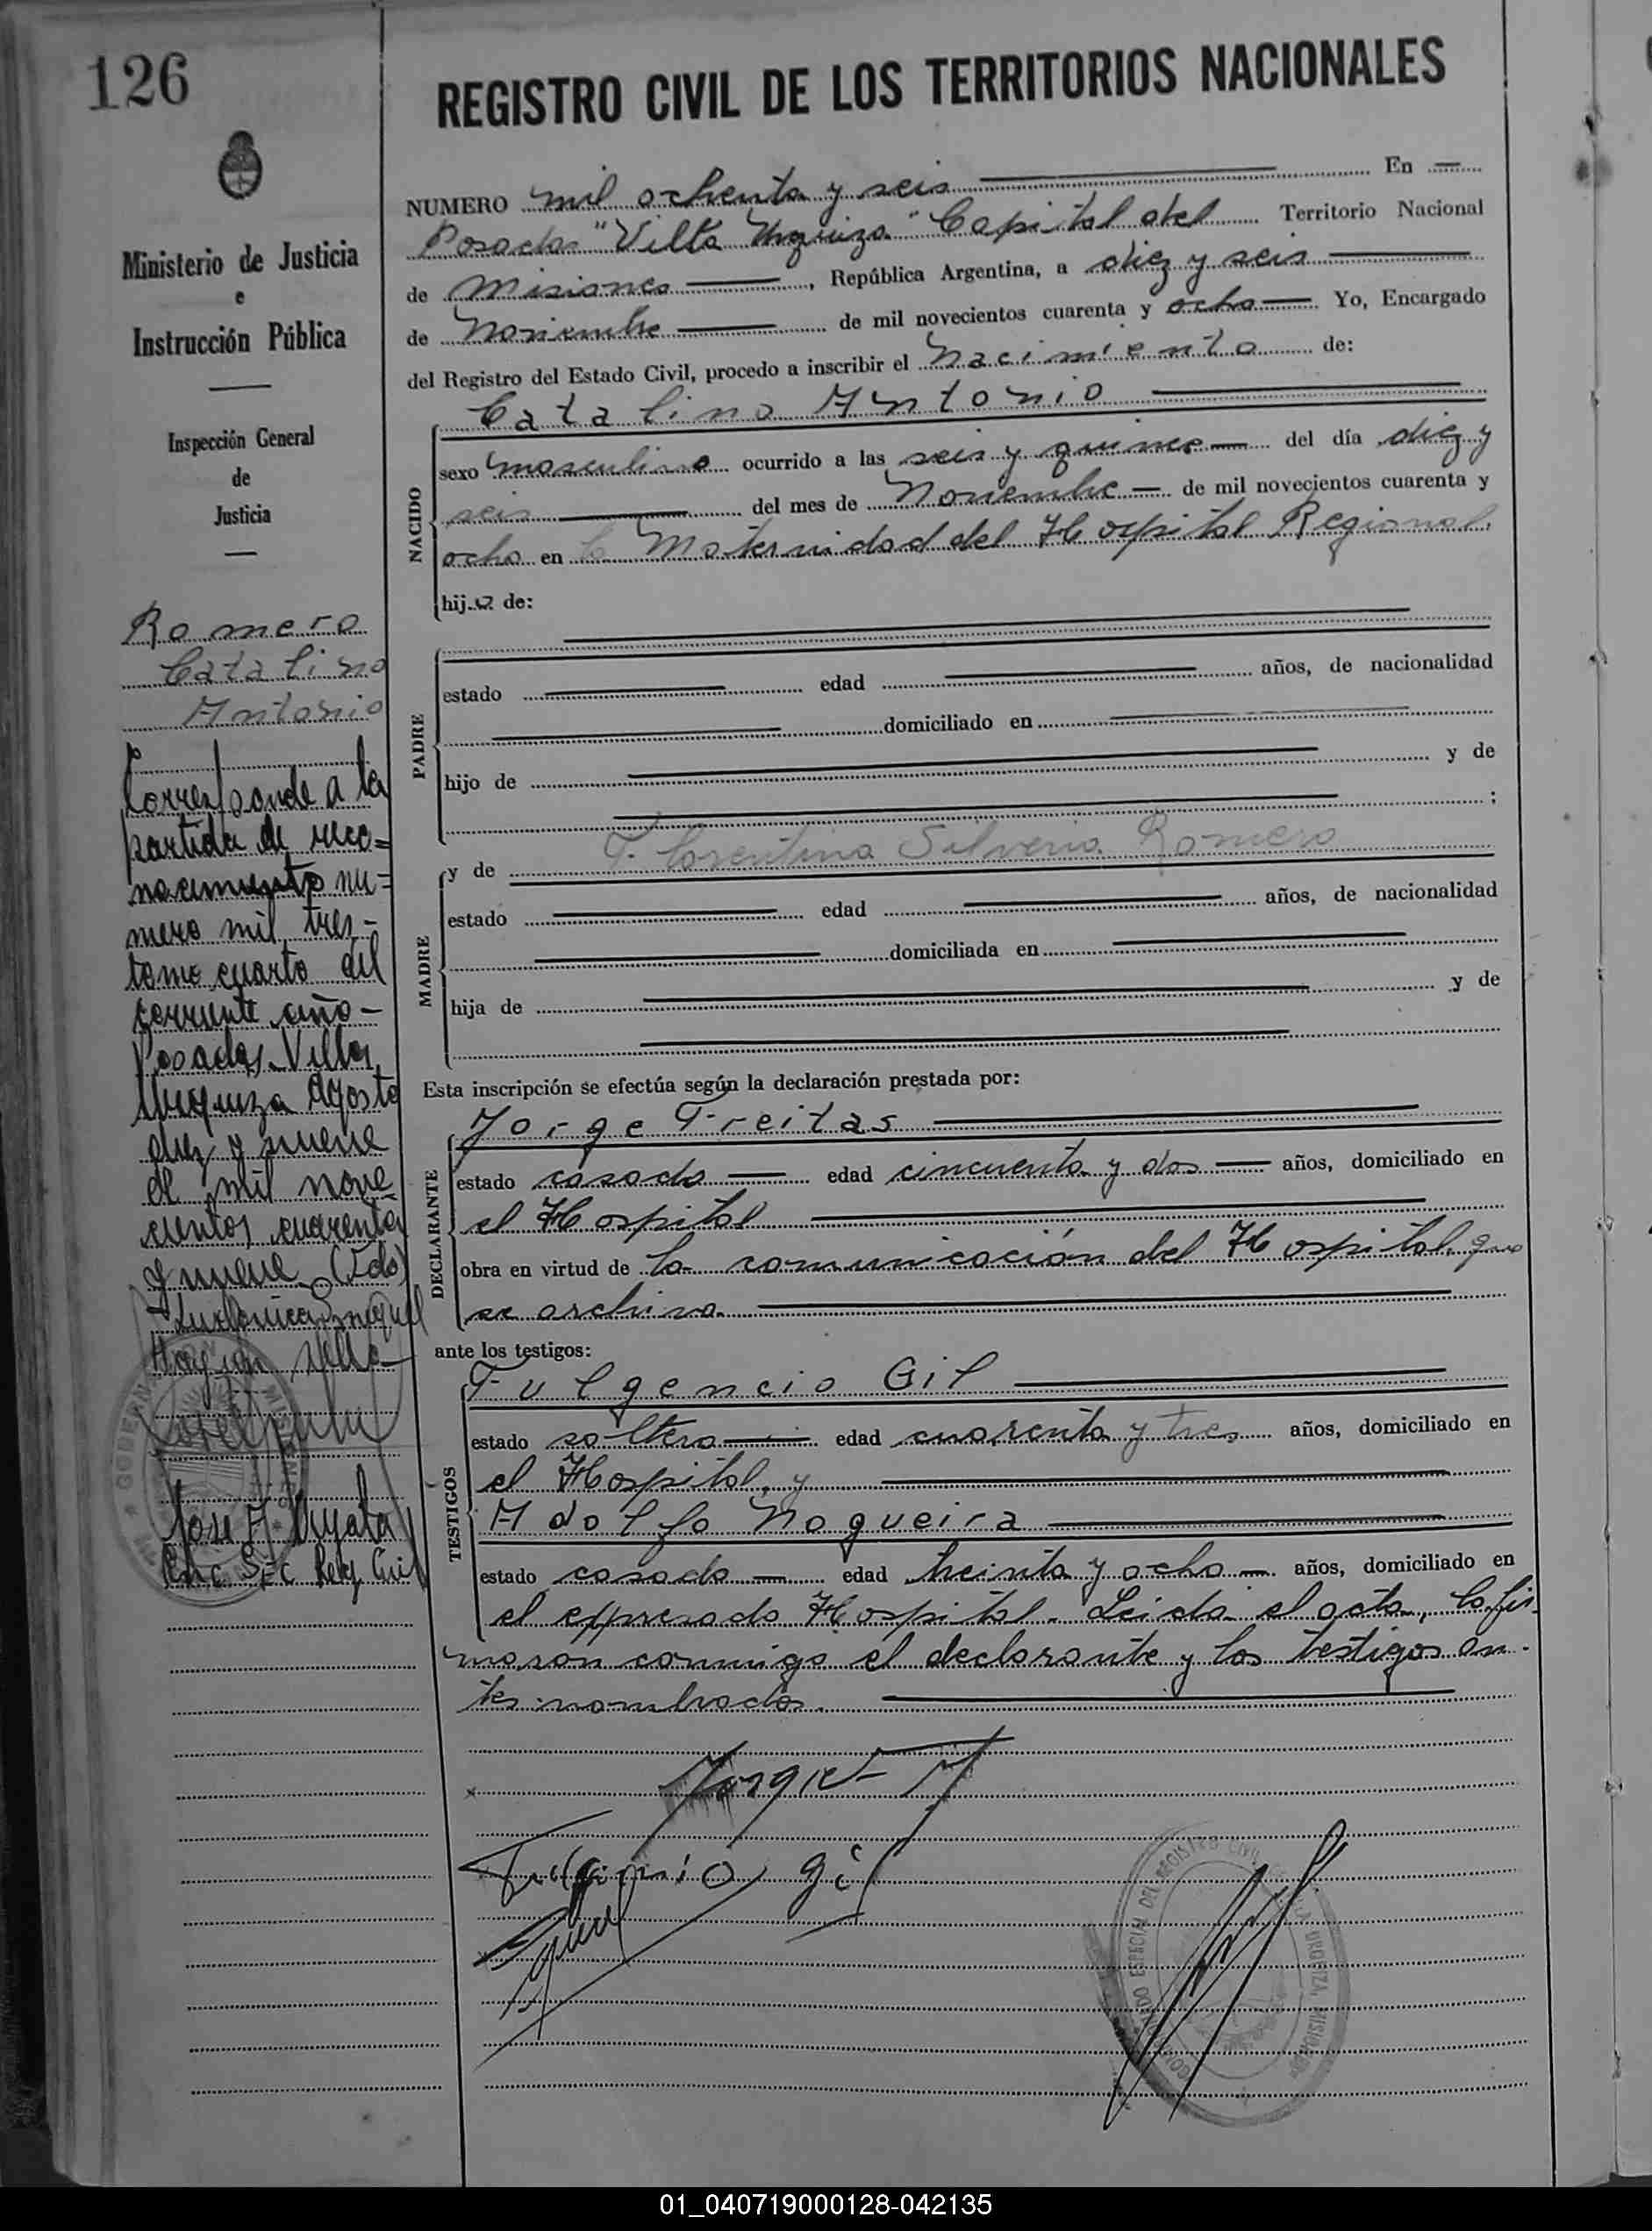 126
Ministerio de Justicia
e
Instrucción Pública
Inspección General
de
Justicia
Romero
Catalino
Antonio
Corresponde a la
partida de reco=
nocimiento nu=
mero mil tres-
tomo cuarto del
corriente año-
Posadas. Villa
Urquiza Agosto
diez y nueve
de mil nove
cientos cuarenta
y nueve (Fdo)
Hay un sello
Enc Sec Reg Civil
REGISTRO CIVIL DE LOS TERRITORIOS NACIONALES
NUMERO mil ochenta y seis En
Posadas "Villa Urquiza" Capital del Territorio Nacional
de Misiones, República Argentina, a diez y seis
de Noviembre de mil novecientos cuarenta y ocho Yo, Encargado
del Registro del Estado Civil, procedo a inscribir el Nacimiento de:
Catalino Antonio
NACIDO
sexo masculino ocurrido a las seis y quince del día diez y
seis del mes de Noviembre de mil novecientos cuarenta y
ocho en la Maternidad del Hospital Regional.
hijo de:
PADRE
estado edad años, de nacionalidad
domiciliado en
hijo de y de
;
MADRE
y de Florentina Silveria Romero
estado edad años, de nacionalidad
domiciliada en
hija de y de
Esta inscripción se efectúa según la declaración prestada por:
DECLARANTE
Jorge Freitas
estado casado edad cincuenta y dos años, domiciliado en
el Hospital
obra en virtud de la comunicación del Hospital que
se archiva
ante los testigos:
TESTIGOS
Fulgencio Gil
estado soltero edad cuarenta y tres años, domiciliado en
el Hospital, y
Adolfo Nogueira
estado casado edad treinta y ocho años, domiciliado en
el expresado Hospital. Leida el acta, la fir-
maron conmigo el declarante y los testigos an-
tes nombrados.
Jorge F
Fulgencio Gil
01_040719000128-042135